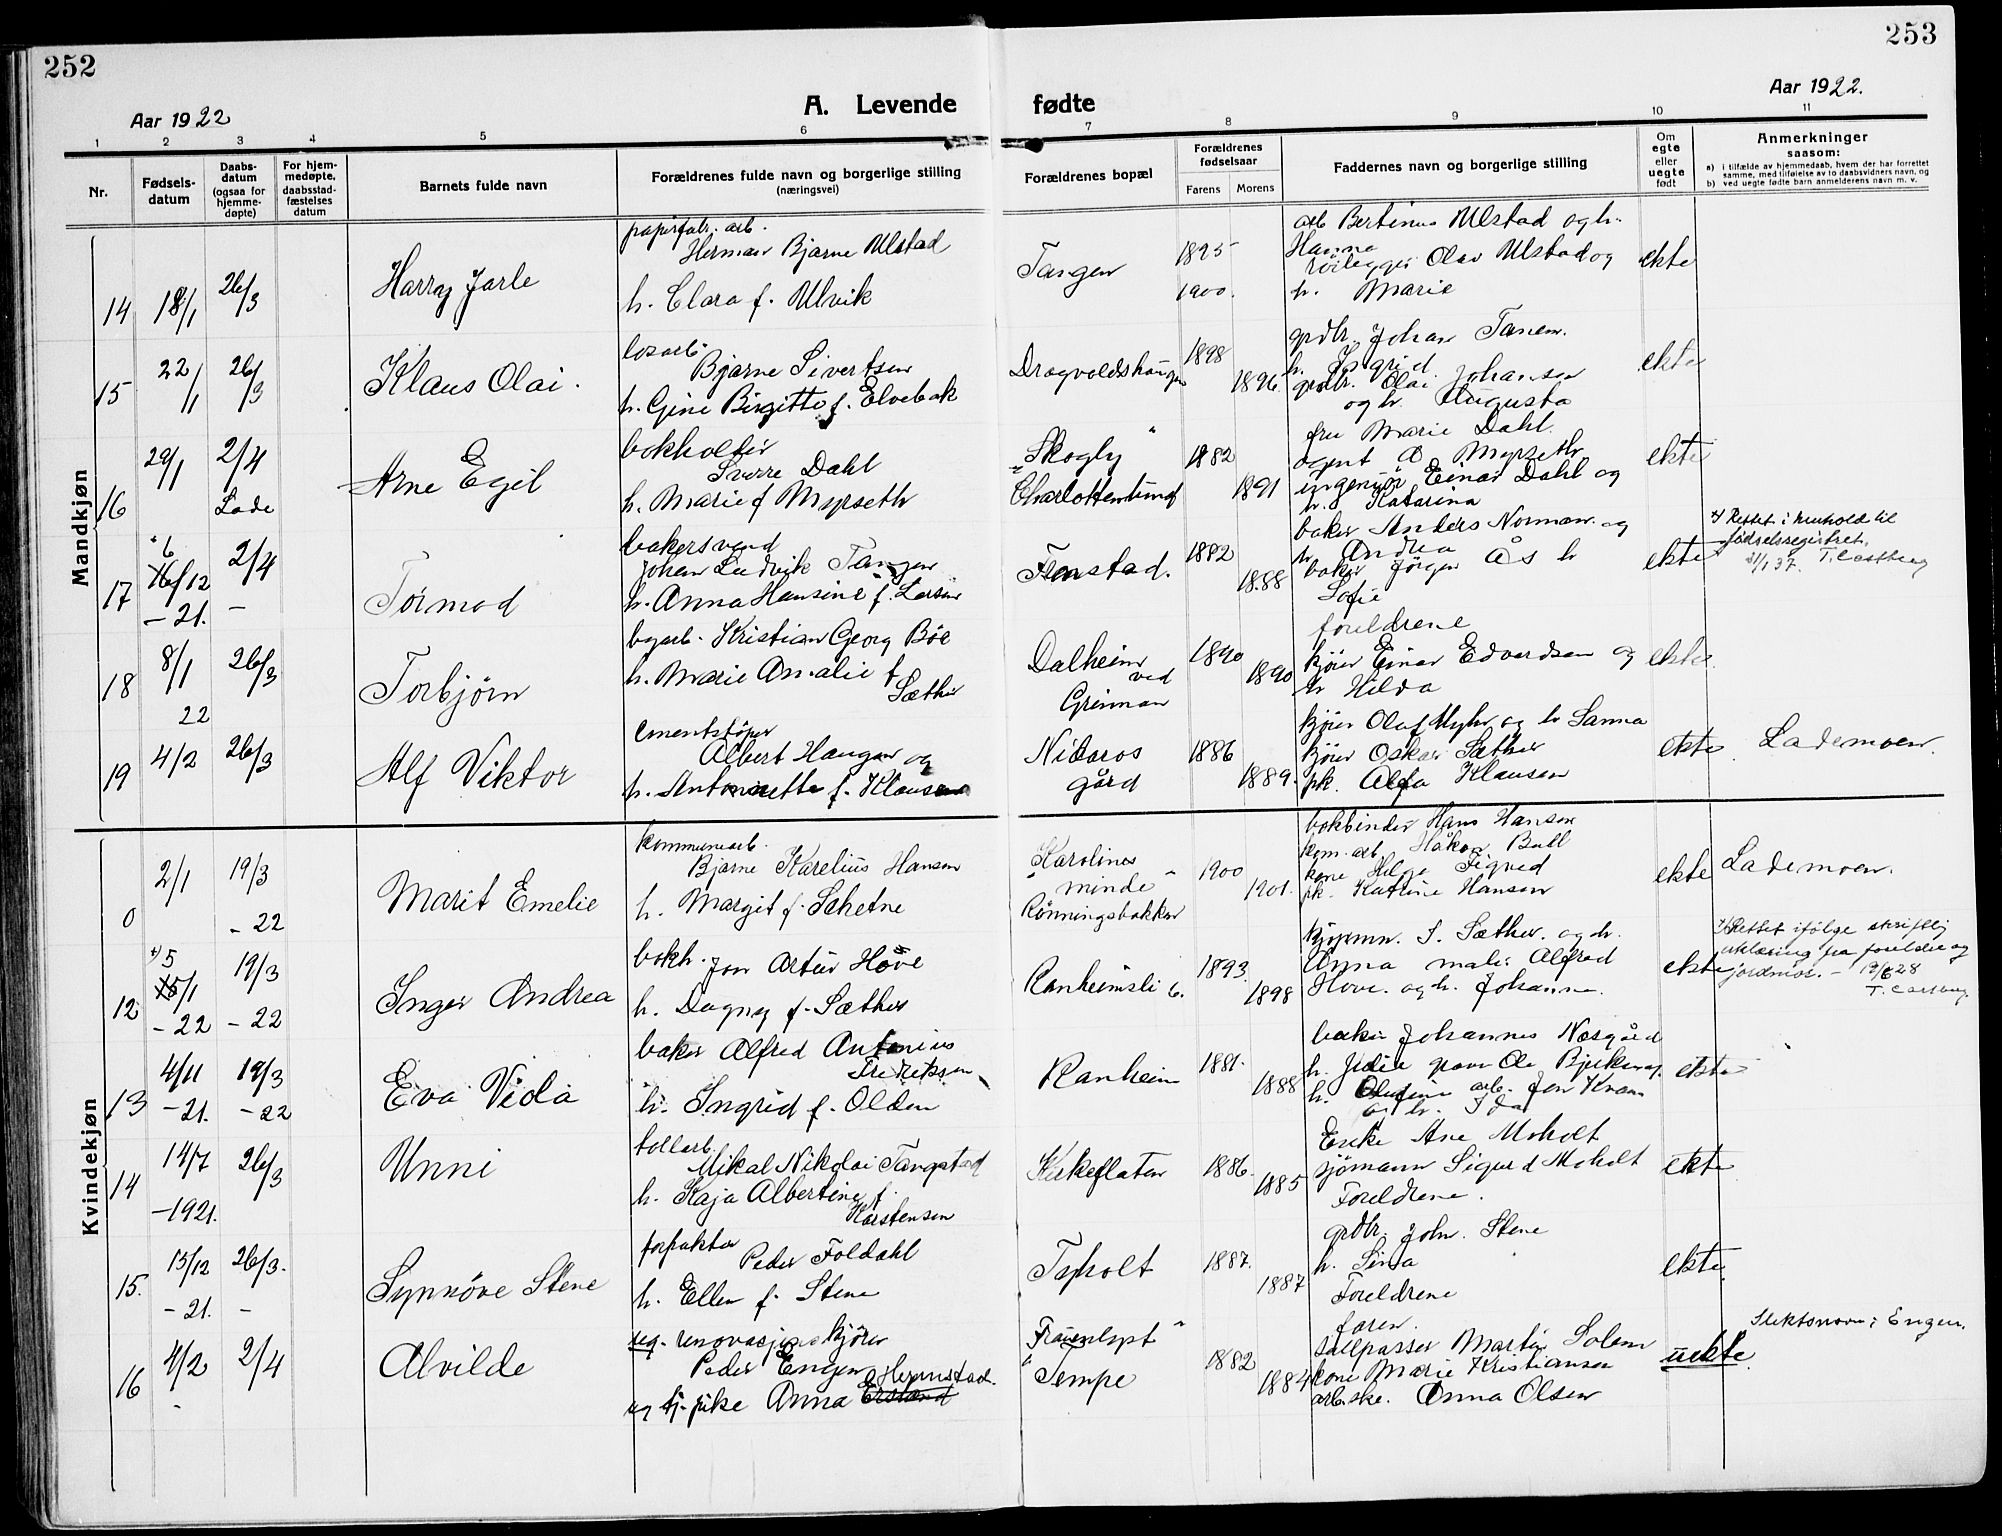 252
253
Aar 1922
A. Levende fødte
Aar 1922.
1 2 3 4 5 6 7 8 9 10 11
Nr.
Fødsels-
datum
Daabs-
datum
(ogsaa for
hjemme-
døpte)
For hjem-
medøpte,
daabsstad-
fæstelses
datum
Barnets fulde navn
Forældrenes fulde navn og borgerlige stilling
(næringsvei)
Forældrenes bopæl
Forældrenes
fødselsaar
Farens Morens
Faddernes navn og borgerlige stilling
Om
egte
eller
uegte
født
Anmerkninger
saasom:
a) i tilfælde av hjemmedaab, hvem der har forrettet
samme, med tilføielse av to daabsvidners navn, og
b) ved uegte fødte barn anmelderens navn m. v.
Mandkjøn
14 18/1 26/3
Harry Jarle
papirfabr. arb.
Herman Bjarne Ulstad
h. Clara f. Ulvik
Tangen
1895
1900.
arb Bertinus Ulstad og h.
Hanna
rörlegger Olav Ulstad og
h. Marie
ekte
15 22/1 26/3
Klaus Olai.
losarb.
Bjarne Sivertsen
h. Gine Birgitte f. Elvebak
Dragvoldshaugen
1898
1896.
grdbr. Johan Tanem.
h. Ingrid.
grdbr. Olai Johansen
og h. Augusta
ekte
16 29/1 2/4
Lade
Arne Egil
bokholder
Sverre Dahl
h. Marie f Myrseth
"Skogly"
Charlottenlund
1882
1891
fru Marie Dahl.
agent O Myrseth
ingeniör Einar Dahl og
h. Katarina
ekte
17 6 16/12 2/4
- 21. -
Tormod
bakersvend
Johan Ludvik Tangen
h. Anna Hansine f. Larsen
Fenstad.
1882
1888
baker Anders Norman. og
h. Andrea
baker Jörgen Ås h
Sofie
foreldrene
ekte
*) Rettet i henhold til
fødselsregistret.
31/1 37. T. Castberg
18 8/1 26/3
22
Torbjørn
byarb. Kristian Georg Böe
h. Marie Amalie f
Sæther
Dalheim
ved
Grinman
1890
1890
kjörer Einar Edvardsen og
h Hilda
ekte.
19 4/2 26/3
Alf Viktor
cementstøper
Albert Haugen og
h. Antonette f. Klausen
Nidaros
gård
1886
1889.
kjörer Olaf Myhr og h Sanna
kjörer Oskar Sæther
pk. Alfa Klausen
ekte.
Lademoen.
Kvindekjøn
0 2/1 19/3
- 22
Marit Emelie
kommunearb.
Bjarne Karelius Hansen
h. Margit f. Schetne
"Karolines
minde"
Rönningsbakken
1900
1901.
bokbinder Hans Hansen
kom. arb. Håkon Bull
kone Helga Sigved
pk. Katrine Hansen
ekte
Lademoen.
12 *) 5 15/1 19/3
- 22 - 22
Inger Andrea
bokh. Jon Artur Hove
h. Dagny f. Sæther
Ranheimsli 6.
1893
1898
kjöpmn. S. Sæther. og h.
Anna maler Alfred
Hove. og h. Johanne.
ekte
*) Rettet ifölge skriftlig
erklæring fra foreldre og
jordmor. - 19/6 28
T. Castberg.
13 4/11 19/3
- 21. - 22
Eva Vida
baker Alfred Antonius
Fredriksen
h. Ingrid f. Olden
Ranheim
1881.
1888
baker Johannes Næsgård
h.
h. arb. Jon Kvam
og h. Ida
ekte
14 14/7 26/3
- 1921.
Unni
tollarb.
Mikal Nikolai Tangstad
h. Kaja Albertine f.
Karstensen
Kirkeflaten
1886.
1885
Enke Ane Moholt
sjömann Sigurd Moholt
Foreldrene.
ekte
15. 13/12 26/3.
- 21. -
Synnöve Stene
forfatter
Peder Foldahl
h. Ellen f. Stene
Tyholt
1887.
1887
grdbr. John. Stene
h. Sina
Foreldrene
ekte.
16 4/2 2/4
-
Alvilde
ug. renovasjonskjörer
Peder Engen
ug tj. pike Anna Hermstad.
1882
1884
"Fraienlyst"
Tempe
faren.
salpasser Martin Solem
kone Marie Kristiansen
arbske. Anna Olsen
uekte.
Slektsnavn; Engen.